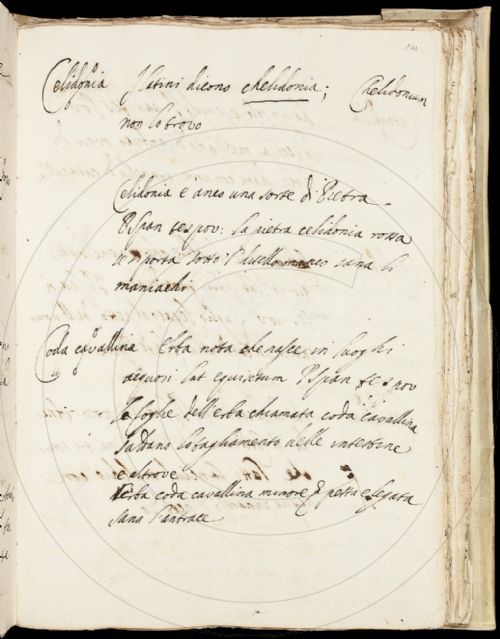 Celidonia I latini dicono chelidonia; Chelidonium
non lo trovo
Celidonia e anco una sorte di Pietra
P. Ispan tes pov: la pietra celidonia rossa
se si porta sotto l' ditello manco sana li
maniachi
Coda cavallina Erba nota che nasce in luoghi
acquosi lat equisetum P. Ispan tes pov
le foglie dell'erba chiamata coda cavallina
saldano lo tagliamento delle interiora
e altrove
erba coda cavallina minore pesta e legata
sana l'antrace